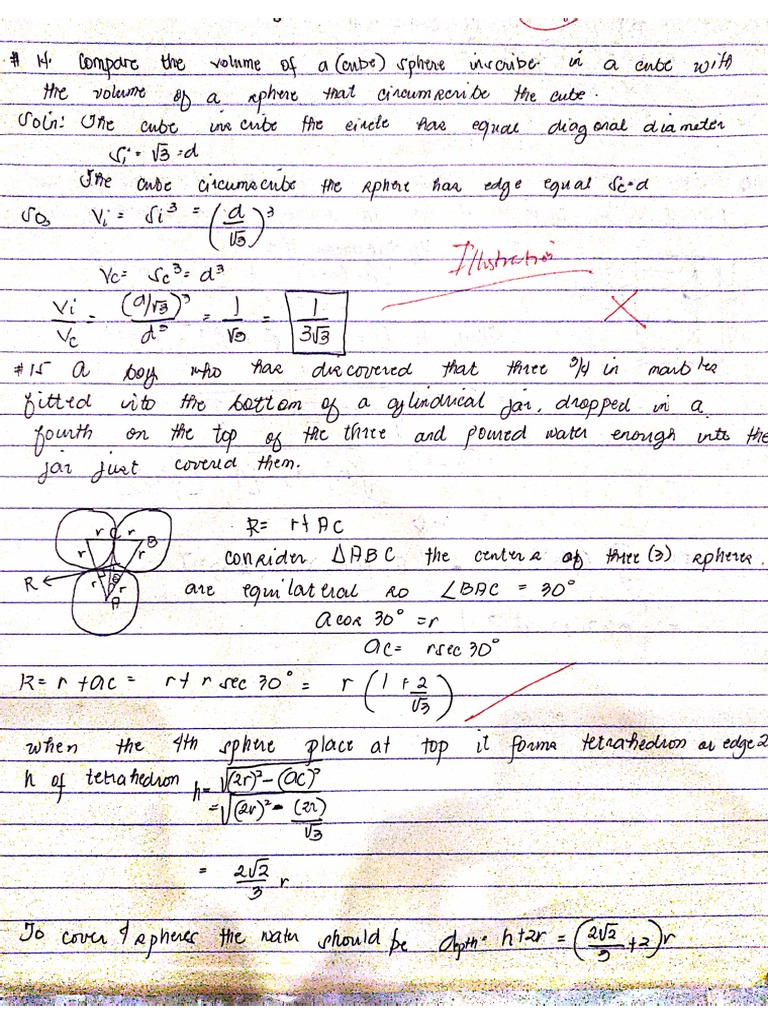 # 14. Compare the volume of a (cube) sphere inscribe in a cube with
the volume of a sphere that circumscribe the cube.
Soln: The cube inscribe the circle has equal diagonal diameter
Si = √3 = d
The cube circumscribe the sphere has edge equal Sc=d
So, Vi = Si³ = (d/√3)³
Vc = Sc³ = d³
Illustration
Vi/Vc = (d/√3)³/d³ = 1/√3 = 1/3√3
#15 A boy who has discovered that three 3/4 in marbles
fitted into the bottom of a cylindrical jar, dropped in a
fourth on the top of the three and poured water enough into the
jar just covered them.
R = r+AC
r C r B
r r
consider △ABC the centers of three (3) spheres.
R r θ r A
are equilateral so ∠BAC = 30°
a cos 30° = r
ac = r sec 30°
R = r + ac = r + r sec 30° = r (1 + 2/√3)
when the 4th sphere place at top it forms tetrahedron as edge 2
h of tetrahedron h = √(2r)² - (ac)²
= √(2r)² - (2r)/√3
= 2√2/3 r
To cover 4 spheres the water should be depth = h+2r = (2√2/3 + 2) r